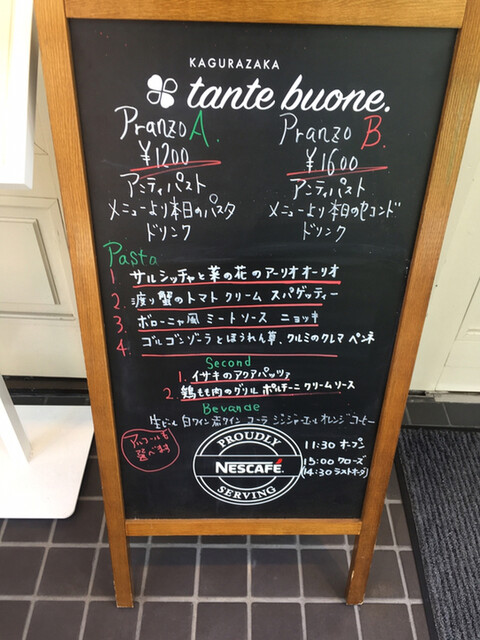 KAGURAZAKA
tante buone.
Pranzo A.
¥1200
アンティパスト
メニューより本日のパスタ
ドリンク
Pranzo B.
¥1600
アンティパスト
メニューより本日のセコンド
ドリンク
Pasta
1. サルシッチャと菜の花のアーリオオーリオ
2. 渡り蟹のトマトクリーム スパゲッティー
3. ボローニャ風 ミートソース ニョッキ
4. ゴルゴンゾーラとほうれん草、クルミのクレマ ペンネ
Second
1. イサキのアクアパッツァ
2. 鶏もも肉のグリル ポルチーニクリームソース
Bevande
生ビール 白ワイン 赤ワイン コーラ ジンジャーエール オレンジ コーヒー
アルコールも
選べます
PROUDLY
NESCAFÉ
SERVING
11:30 オープン
15:00 クローズ
(14:30 ラストオーダー)